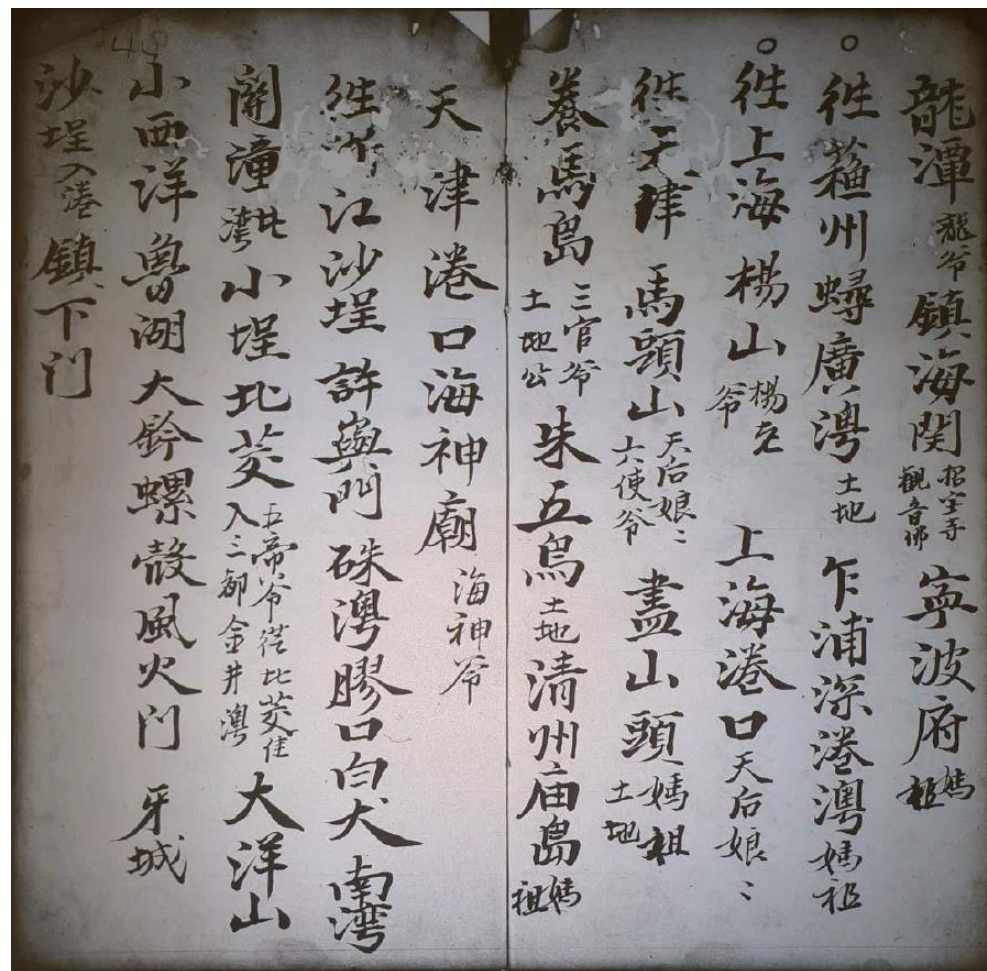 龍潭龍爷鎮海関招宝寺觀音佛寧波府媽祖
往蘓州蟳廣澚土地乍浦深港澚媽祖
往上海楊山楊老爷上海港口天后娘〻
往天津馬頭山天后娘〻六使爷盡山頭媽祖土地
養馬島三官爷土地公朱五島土地清州庙島媽祖
天津港口海神廟海神爷
往江沙埕許嶼門硃澚膠口白犬南湾
關潼北湾小埕北茭五帝爷從北茭住入三都金井澚大洋山
小西洋魯湖大鈴螺殼風火门牙城
沙埕入港鎮下门